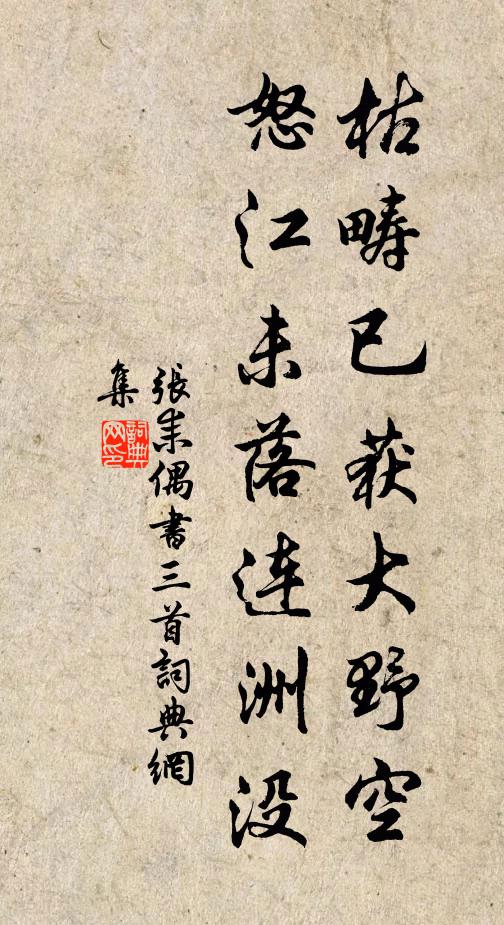 枯畴已获大野空
怒江未落连洲没
張耒偶書三首詞典網
集
詞典网印